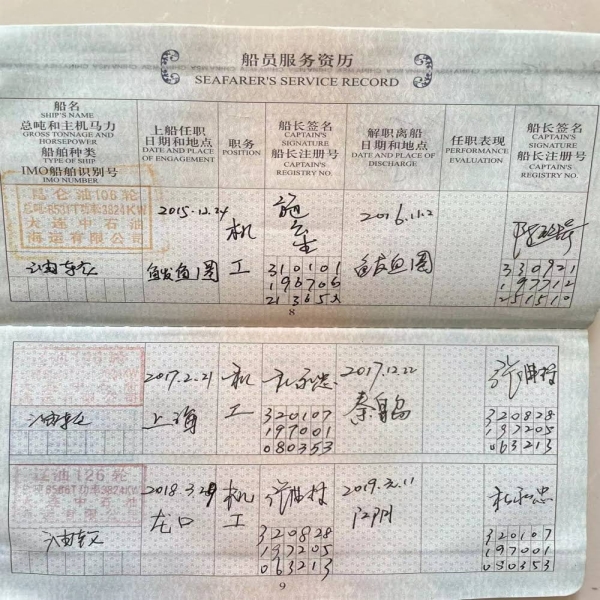 船员服务资历
SEAFARER'S SERVICE RECORD
船名
SHIP'S NAME
总吨和主机马力
GROSS TONNAGE AND
HORSEPOWER
船舶种类
TYPE OF SHIP
IMO船舶识别号
IMO NUMBER
上船任职
日期和地点
DATE AND PLACE
OF ENGAGEMENT
职务
POSITION
船长签名
CAPTAIN'S
SIGNATURE
船长注册号
CAPTAIN'S
REGISTRY NO.
解职离船
日期和地点
DATE AND PLACE OF
DISCHARGE
任职表现
PERFORMANCE
EVALUATION
船长签名
CAPTAIN'S
SIGNATURE
船长注册号
CAPTAIN'S
REGISTRY NO.
昆仑油106轮
总吨8531T功率3824KW
大连中石油
海运有限公司
油轮
2015.12.24
鲅鱼圈
机
工
310101
196706
213652
2016.11.2
鲅鱼圈
330921
197712
251510
8
油轮
2017.2.21
上海
机
工
320107
197001
080353
2017.12.22
秦皇岛
320828
197205
063213
油126轮
油轮
龙口
机
工
320828
197205
063213
320107
197001
080353
9